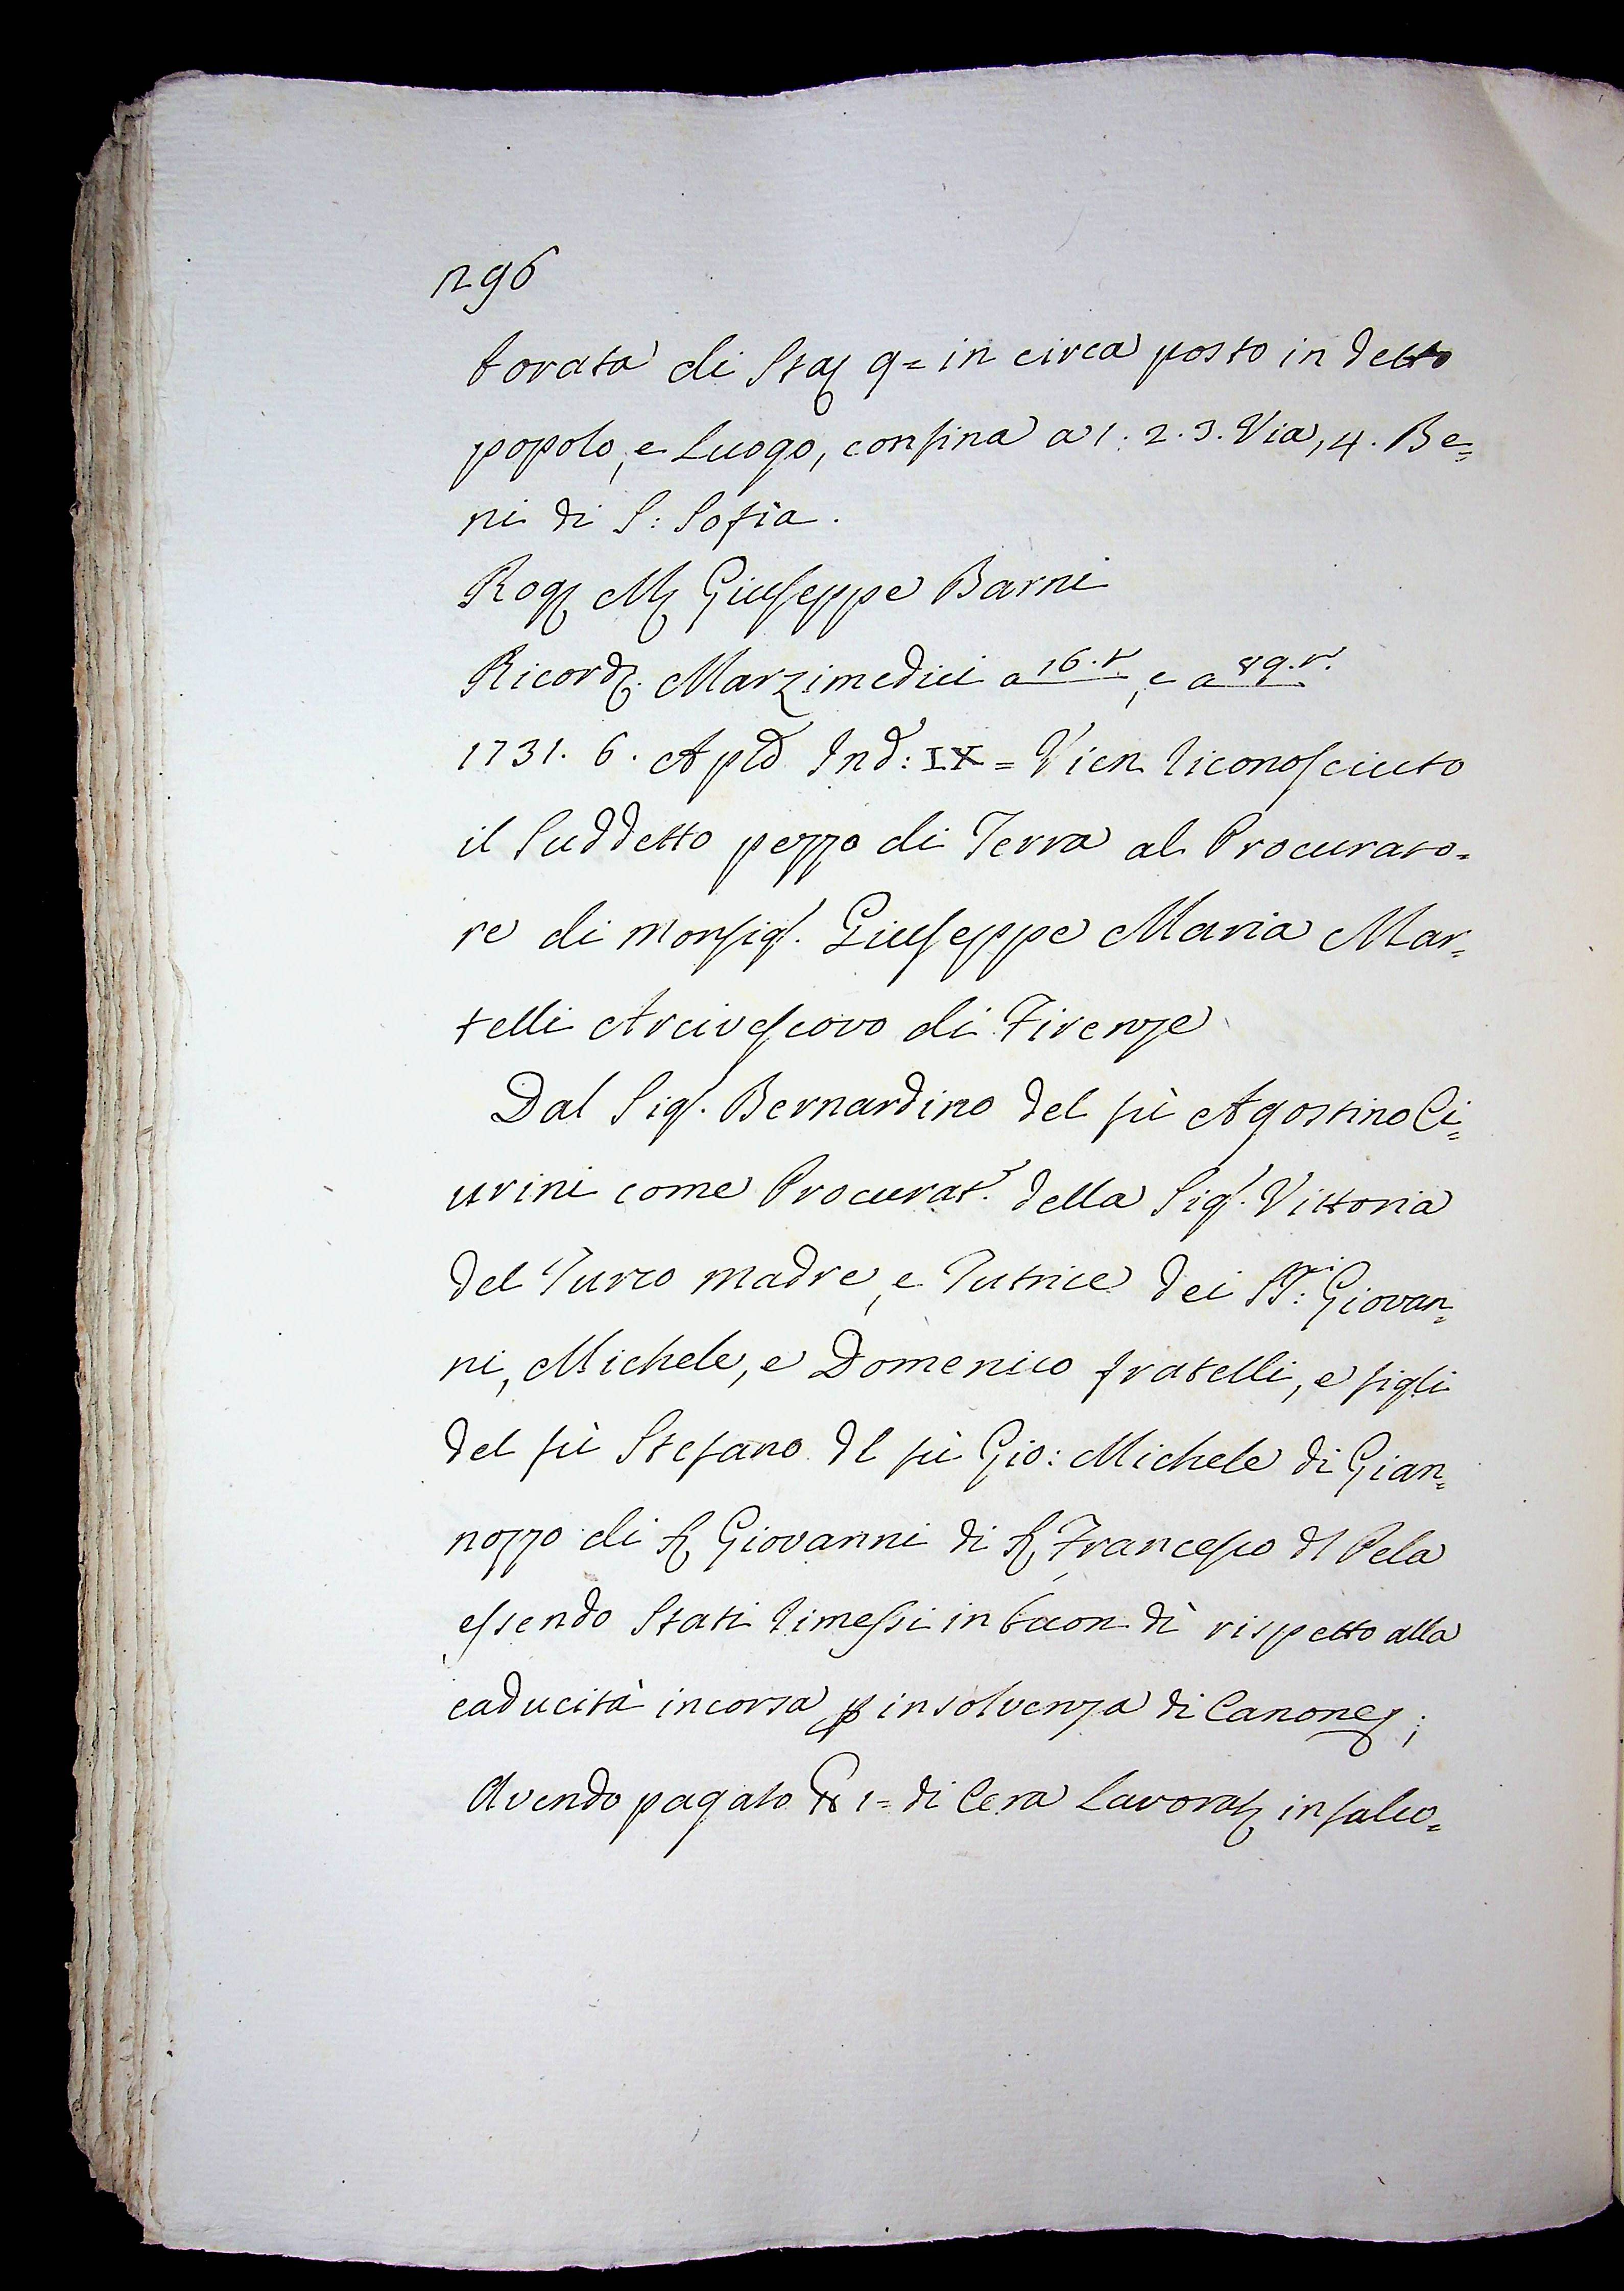 296
borata di Staj 9= in circa posto in detto
popolo, e Luogo, confina a 1. 2. 3. Via, 4. Be=
ni di S: Sofia.
Rog. M. Giuseppe Barni
Ricord. Marzimedici a 16. r., e a 89. r.
1731. 6. Aple Ind: IX = Vien riconosciuto
il Suddetto pezzo di Terra al Procurato=
re di Monsig. Giuseppe Maria Mar=
telli Arcivescovo di Firenze
Dal Sig. Bernardino del fù Agostino Ci=
urini come Procurat. della Sig. Vittoria
del Turco madre, e Tutrice dei SS.ri: Giovan=
ni, Michele, e Domenico fratelli, e figli
del fù Stefano dl fù Gio: Michele di Gian=
nozzo di Giovanni di Francesco dl Pela
essendo Stati rimessi in buon dì rispetto alla
caducità incorsa p insolvenza di Canone;
Avendo pagato 1= di Cera Lavorat in falco=